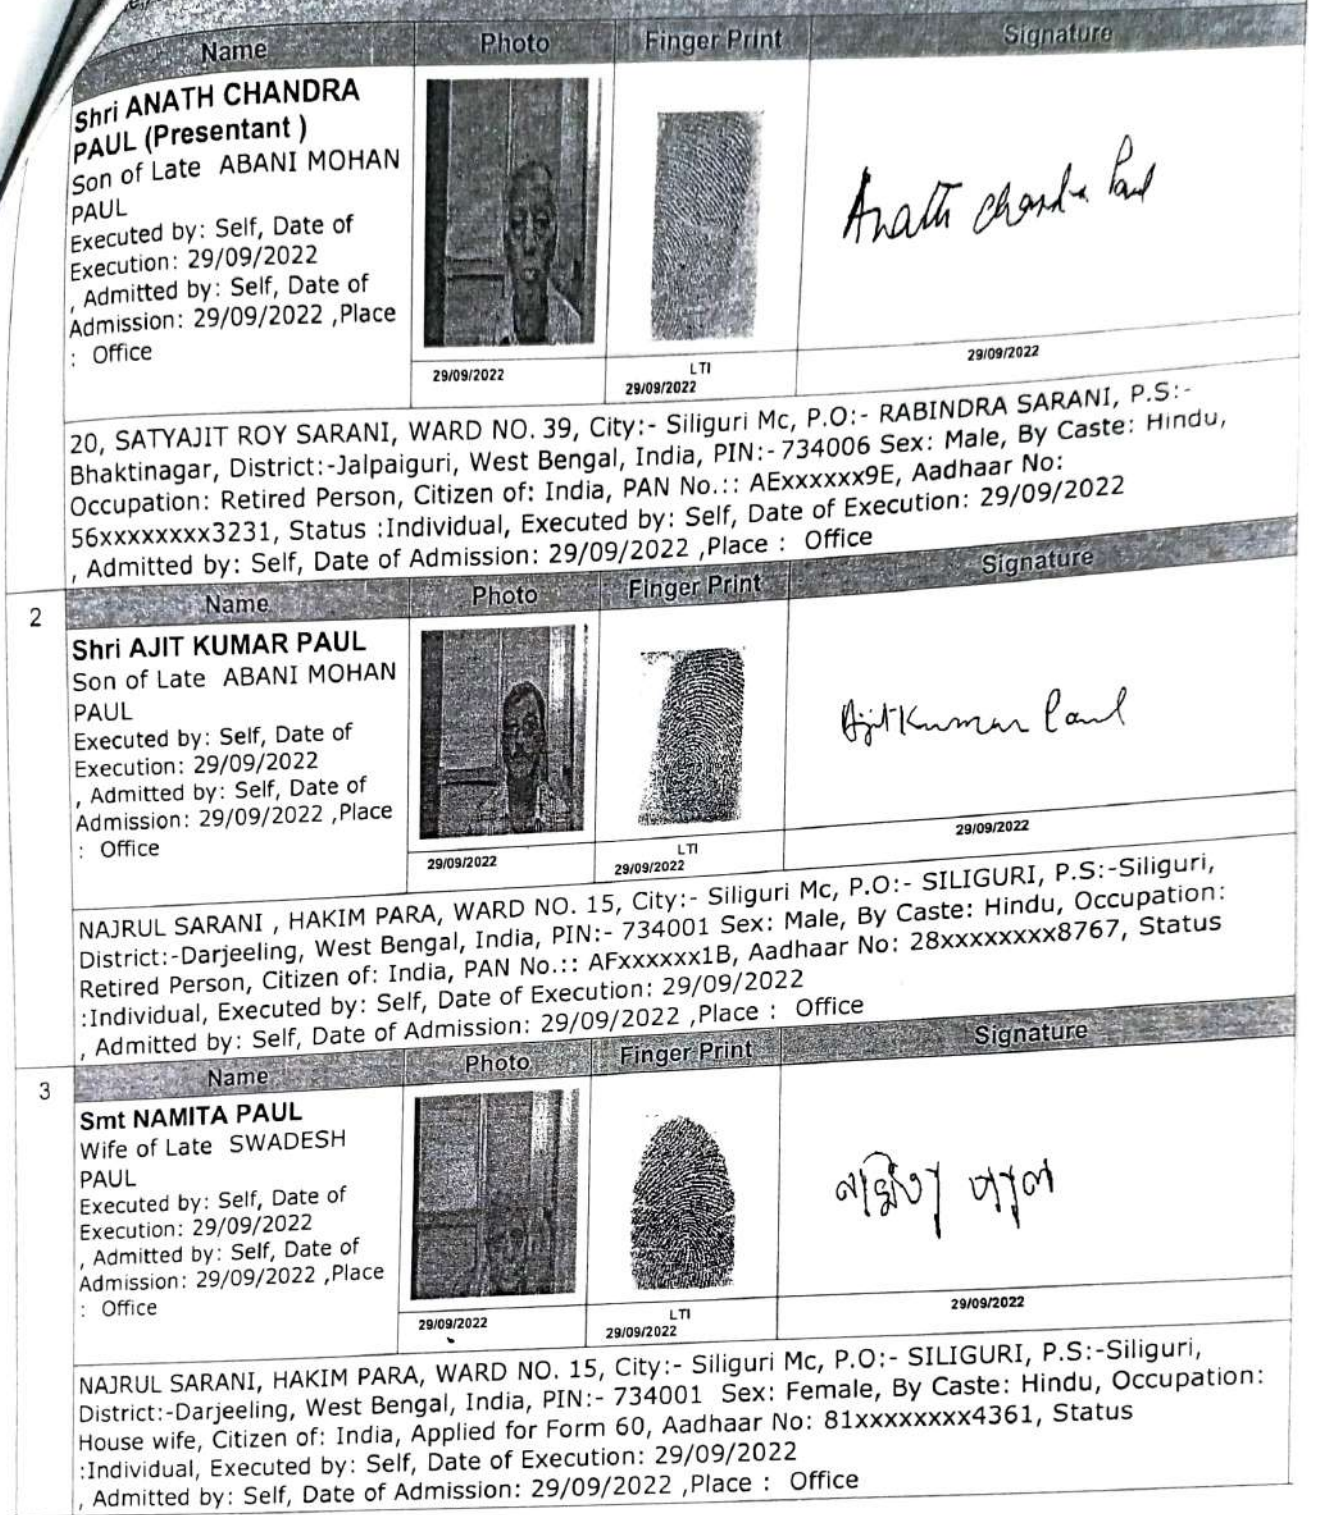 Name Photo Finger Print Signature
Shri ANATH CHANDRA
PAUL (Presentant )
Son of Late ABANI MOHAN
PAUL
Executed by: Self, Date of
Execution: 29/09/2022
, Admitted by: Self, Date of
Admission: 29/09/2022 ,Place
: Office
Anath Chandra Paul
29/09/2022
LTI
29/09/2022
29/09/2022
20, SATYAJIT ROY SARANI, WARD NO. 39, City:- Siliguri Mc, P.O:- RABINDRA SARANI, P.S:-
Bhaktinagar, District:-Jalpaiguri, West Bengal, India, PIN:- 734006 Sex: Male, By Caste: Hindu,
Occupation: Retired Person, Citizen of: India, PAN No.:: AExxxxxx9E, Aadhaar No:
56xxxxxxxx3231, Status :Individual, Executed by: Self, Date of Execution: 29/09/2022
, Admitted by: Self, Date of Admission: 29/09/2022 ,Place : Office
2
Name Photo Finger Print Signature
Shri AJIT KUMAR PAUL
Son of Late ABANI MOHAN
PAUL
Executed by: Self, Date of
Execution: 29/09/2022
, Admitted by: Self, Date of
Admission: 29/09/2022 ,Place
: Office
Ajit Kumar Paul
29/09/2022
LTI
29/09/2022
29/09/2022
NAJRUL SARANI , HAKIM PARA, WARD NO. 15, City:- Siliguri Mc, P.O:- SILIGURI, P.S:-Siliguri,
District:-Darjeeling, West Bengal, India, PIN:- 734001 Sex: Male, By Caste: Hindu, Occupation:
Retired Person, Citizen of: India, PAN No.:: AFxxxxxx1B, Aadhaar No: 28xxxxxxxx8767, Status
:Individual, Executed by: Self, Date of Execution: 29/09/2022
, Admitted by: Self, Date of Admission: 29/09/2022 ,Place : Office
3
Name Photo Finger Print Signature
Smt NAMITA PAUL
Wife of Late SWADESH
PAUL
Executed by: Self, Date of
Execution: 29/09/2022
, Admitted by: Self, Date of
Admission: 29/09/2022 ,Place
: Office
নমিতা পাল
29/09/2022
LTI
29/09/2022
29/09/2022
NAJRUL SARANI, HAKIM PARA, WARD NO. 15, City:- Siliguri Mc, P.O:- SILIGURI, P.S:-Siliguri,
District:-Darjeeling, West Bengal, India, PIN:- 734001 Sex: Female, By Caste: Hindu, Occupation:
House wife, Citizen of: India, Applied for Form 60, Aadhaar No: 81xxxxxxxx4361, Status
:Individual, Executed by: Self, Date of Execution: 29/09/2022
, Admitted by: Self, Date of Admission: 29/09/2022 ,Place : Office